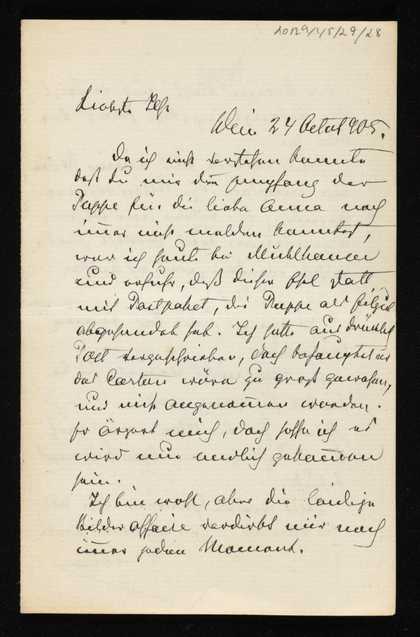 Wien 24 Octob 905.
Da ich nicht verstehen konnte
daß Du mir den Empfang der
Puppe für die liebe Anna noch
immer nicht melden konntest,
war ich heute bei Mühlhauser
und erfuhr, daß dieser Esel statt
mit Postpaket, die Puppe als Eilgut
abgesendet hat. Ich hatte ausdrücklich
Post vorgeschrieben, doch behauptet er
der Carton wäre zu groß gewesen,
und nicht angenommen worden.
Es ärgert mich, doch hoffe ich es
wird nun endlich gekommen
sein.
Ich bin wohl, aber die leidige
Bilder Affaire verdirbt mir noch
immer jeden Moment.